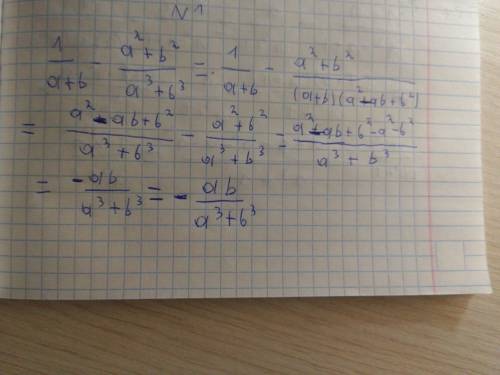 №1
1/(a+b) - (a²+b²)/(a³+b³) = 1/(a+b) - (a²+b²)/((a+b)(a²-ab+b²))
= (a²-ab+b²)/(a³+b³) - (a²+b²)/(a³+b³) = (a²-ab+b²-a²-b²)/(a³+b³)
= -ab/(a³+b³) = - ab/(a³+b³)